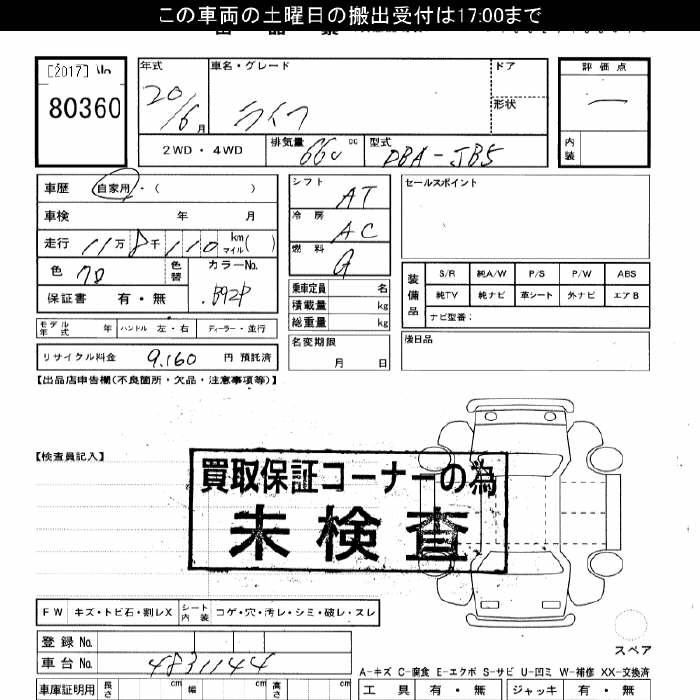 この車両の土曜日の搬出受付は17:00まで
[2017] No
80360
年式 車名・グレード ドア 評価点
20/6月 ライフ 形状 一
2WD・4WD 排気量 660 cc 型式 DBA-JB5 内装
車歴 自家用・( ) シフト AT セールスポイント
車検 年 月 冷房 AC
走行 11万8千110 km マイル( ) 燃料 G
色 クロ 色替 カラーNo. B92P
保証書 有・無
乗車定員 名
積載量 kg
総重量 kg
装備品 S/R 純A/W P/S P/W ABS
純TV 純ナビ 革シート 外ナビ エアB
ナビ型番:
モデル年式 年 ハンドル 左・右 ディーラー・並行
名変期限 月 日
後日品
リサイクル料金 9,160 円 預託済
【出品店申告欄(不良箇所・欠品・注意事項等)】
【検査員記入】
買取保証コーナーの為
未検査
FW キズ・トビ石・割レX シート内装 コゲ・穴・汚レ・シミ・破レ・スレ
登録No.
車台No. 4831144
スペア
A-キズ C-腐食 E-エクボ S-サビ U-凹ミ W-補修 XX-交換済
車庫証明用 長さ cm 幅 cm 高さ cm 工具 有・無 ジャッキ 有・無